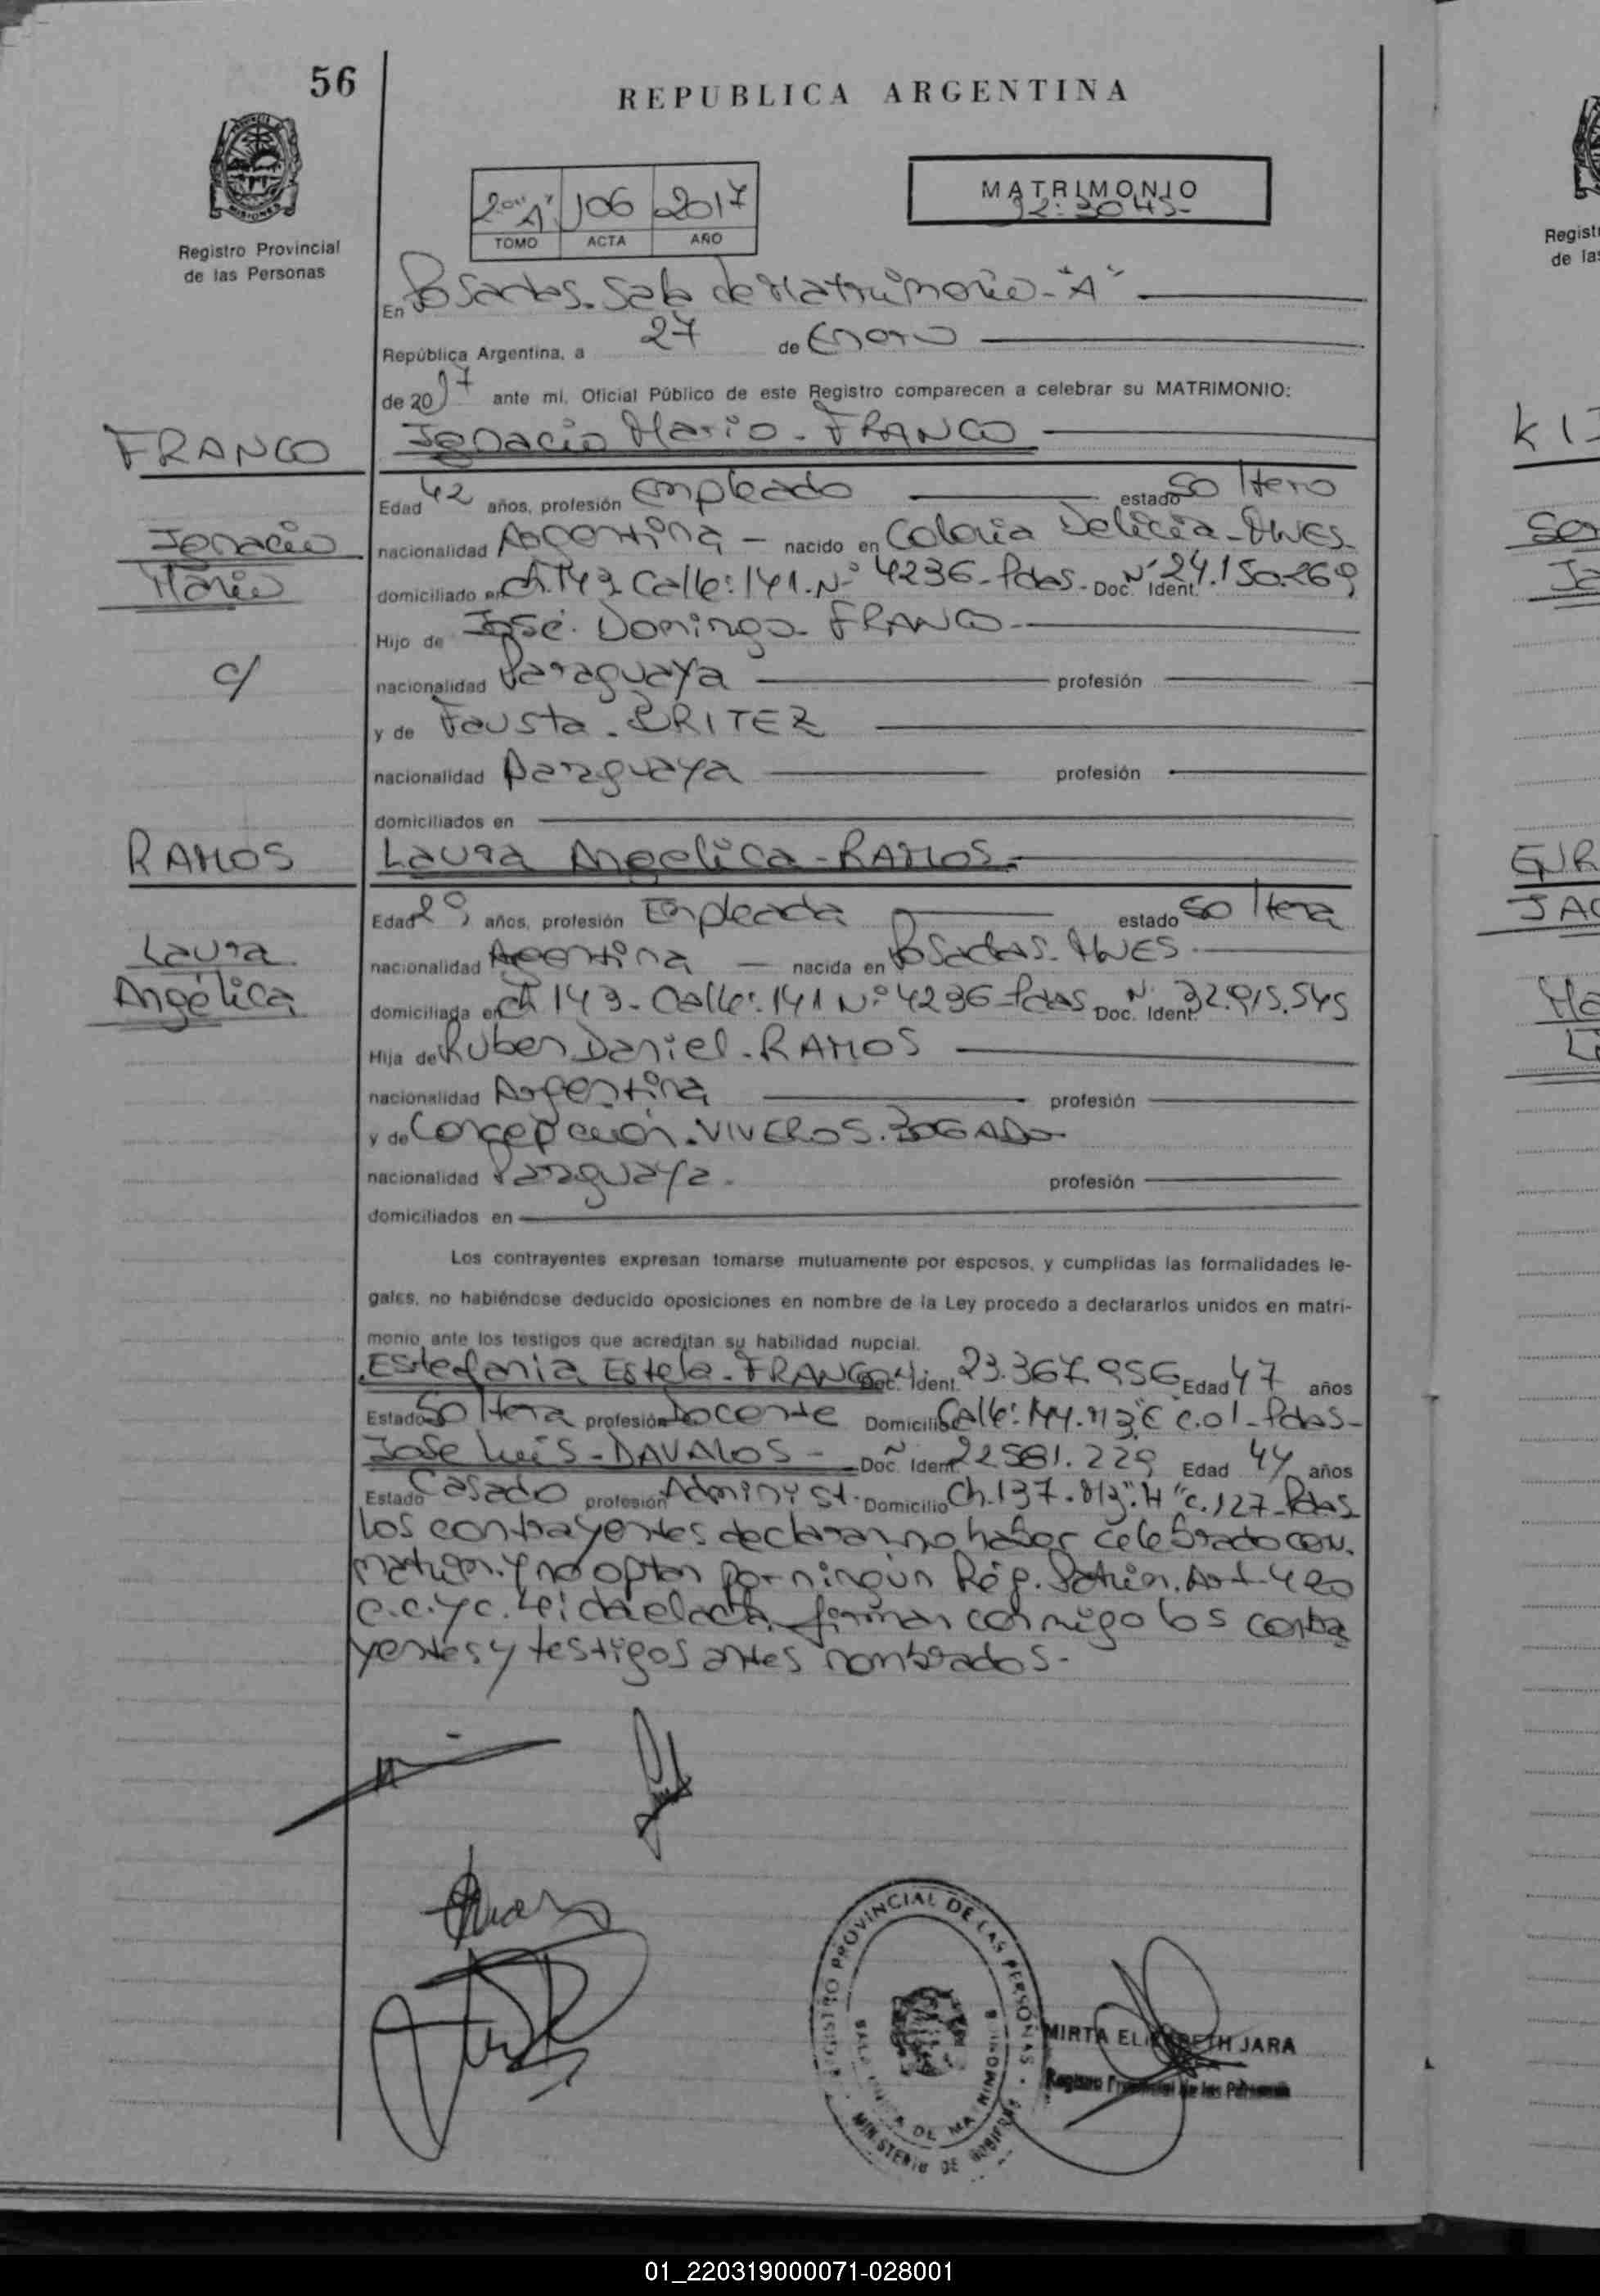 56
REPUBLICA ARGENTINA
Registro Provincial
de las Personas
MISIONES
2º "A" 106 2017
TOMO ACTA AÑO
MATRIMONIO
En Posadas. Sala de Matrimonio - "A"
República Argentina, a 27 de Enero
de 2017 ante mi, Oficial Público de este Registro comparecen a celebrar su MATRIMONIO:
FRANCO
Ignacio Mario - FRANCO
Edad 42 años, profesión Empleado estado Soltero
Ignacio
Mario
nacionalidad Argentina - nacido en Colonia Delicia - Mnes
domiciliado en Ch. 143 Calle: 141. Nº 4236 - Pdas. Doc. Ident. Nº 24.150.269
Hijo de José. Domingo. FRANCO
c/
nacionalidad Paraguaya profesión
y de Fausta. BRITEZ
nacionalidad Paraguaya profesión
domiciliados en
RAMOS
Laura Angelica - RAMOS
Edad 29 años, profesión Empleada estado Soltera
Laura
Angélica
nacionalidad Argentina - nacida en Posadas. MNES
domiciliada en Ch 143 - Calle: 141 Nº 4236 - Pdas Doc. Ident. N. 32.915.545
Hija de Ruben Daniel. RAMOS
nacionalidad Argentina profesión
y de Concepción. VIVEROS. BOGADO
nacionalidad Paraguaya. profesión
domiciliados en
Los contrayentes expresan tomarse mutuamente por esposos, y cumplidas las formalidades le-
gales, no habiéndose deducido oposiciones en nombre de la Ley procedo a declararlos unidos en matri-
monio ante los testigos que acreditan su habilidad nupcial.
Estefania Estela - FRANCO Doc. Ident. 23.367.956 Edad 47 años
Estado Soltera profesión Docente Domicilio Calle: c.01 - Pdas -
Jose Luis - DAVALOS - Doc. Ident 22581.229 Edad 44 años
Estado Casado profesión Administ. Domicilio Ch. 137. Mz". H "c. 127 - Pdas
Los contrayentes declaran no haber celebrado con.
matrim. y no optan por ningún Rég. Patrim. Art. 420
C.C.y C. Leida el acta, firman conmigo los contra
yentes y testigos antes nombrados.-
REGISTRO PROVINCIAL DE LAS PERSONAS
DE MATRIMONIO
MINISTERIO DE GOBIERNO
MIRTA ELIZABETH JARA
Registro Provincial de las Personas
01_220319000071-028001